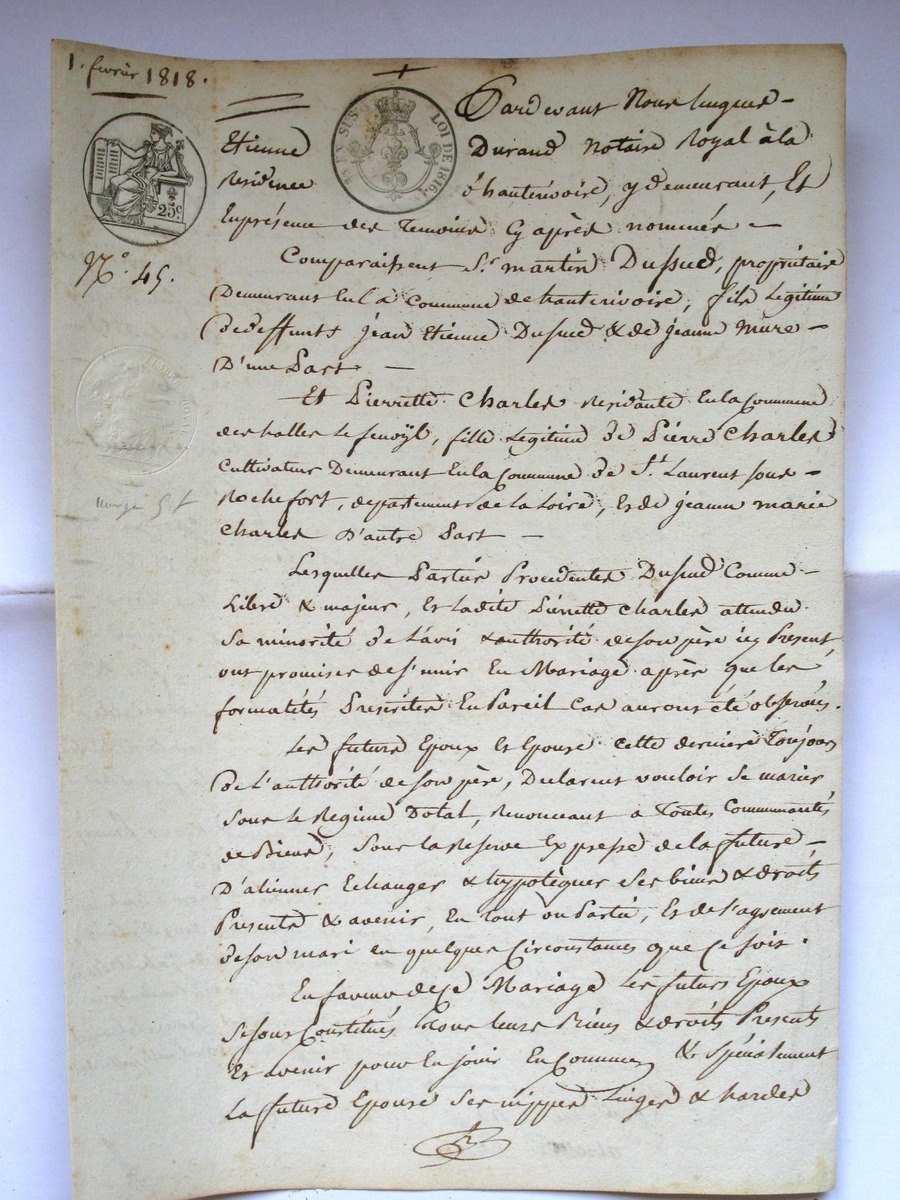 1. fevrier 1818.
EN SUS
LOI DE 1816.
25c
N.° 45.
Pardevant Nous hugues
Etienne Durand Notaire Royal à la
Residence d'hauterivoire, y demeurant, Et
En présence des Temoins Cy après nommés
Comparaissent S.r martin Dussud, propriétaire
Demeurant En la Commune de hauterivoire, fils Legitime
De deffunts jean Etienne Dussud & de jeanne Mure
D'une Part
Et Pierrette Charles residante En la Commune
des halles le fenoÿl, fille Legitime de Pierre Charles
Cultivateur Demeurant En la Commune de S.t Laurent sous
Rochefort, departement de la Loire, Et de jeanne marie
Charles D'autre Part
Lesquelles Parties Procedantes Dussud Comme
Libre & majeur, Et Ladite Pierrette Charles attendu
Sa minorité de L'avis & authorité de son père icy Present
ont promises de s'unir En Mariage après que les
formalités Prescrites En Pareil Cas auront été observées.
Les futurs Epoux Et Epouse cette derniere Toujours
de L'authorité de son père, Declarent vouloir se marier
Sous le Régime Dotal, Renonceant a Toutes Communautés
de Biens, Sous la Reserve Expresse de la future
D'aliénner Echanger & hypotèquer Ses biens & droits
Presents & avenir, En tout ou Partie, Et de l'agrement
de son mari en quelques Circonstances que Ce soit.
En faveur de Ce Mariage Les futurs Epoux
Se sont Constitués Tous leurs Biens & droits Presents
Et avenir pour En jouir En Commun & Spécialement
La future Epouse Ses nippes Linges & hardes